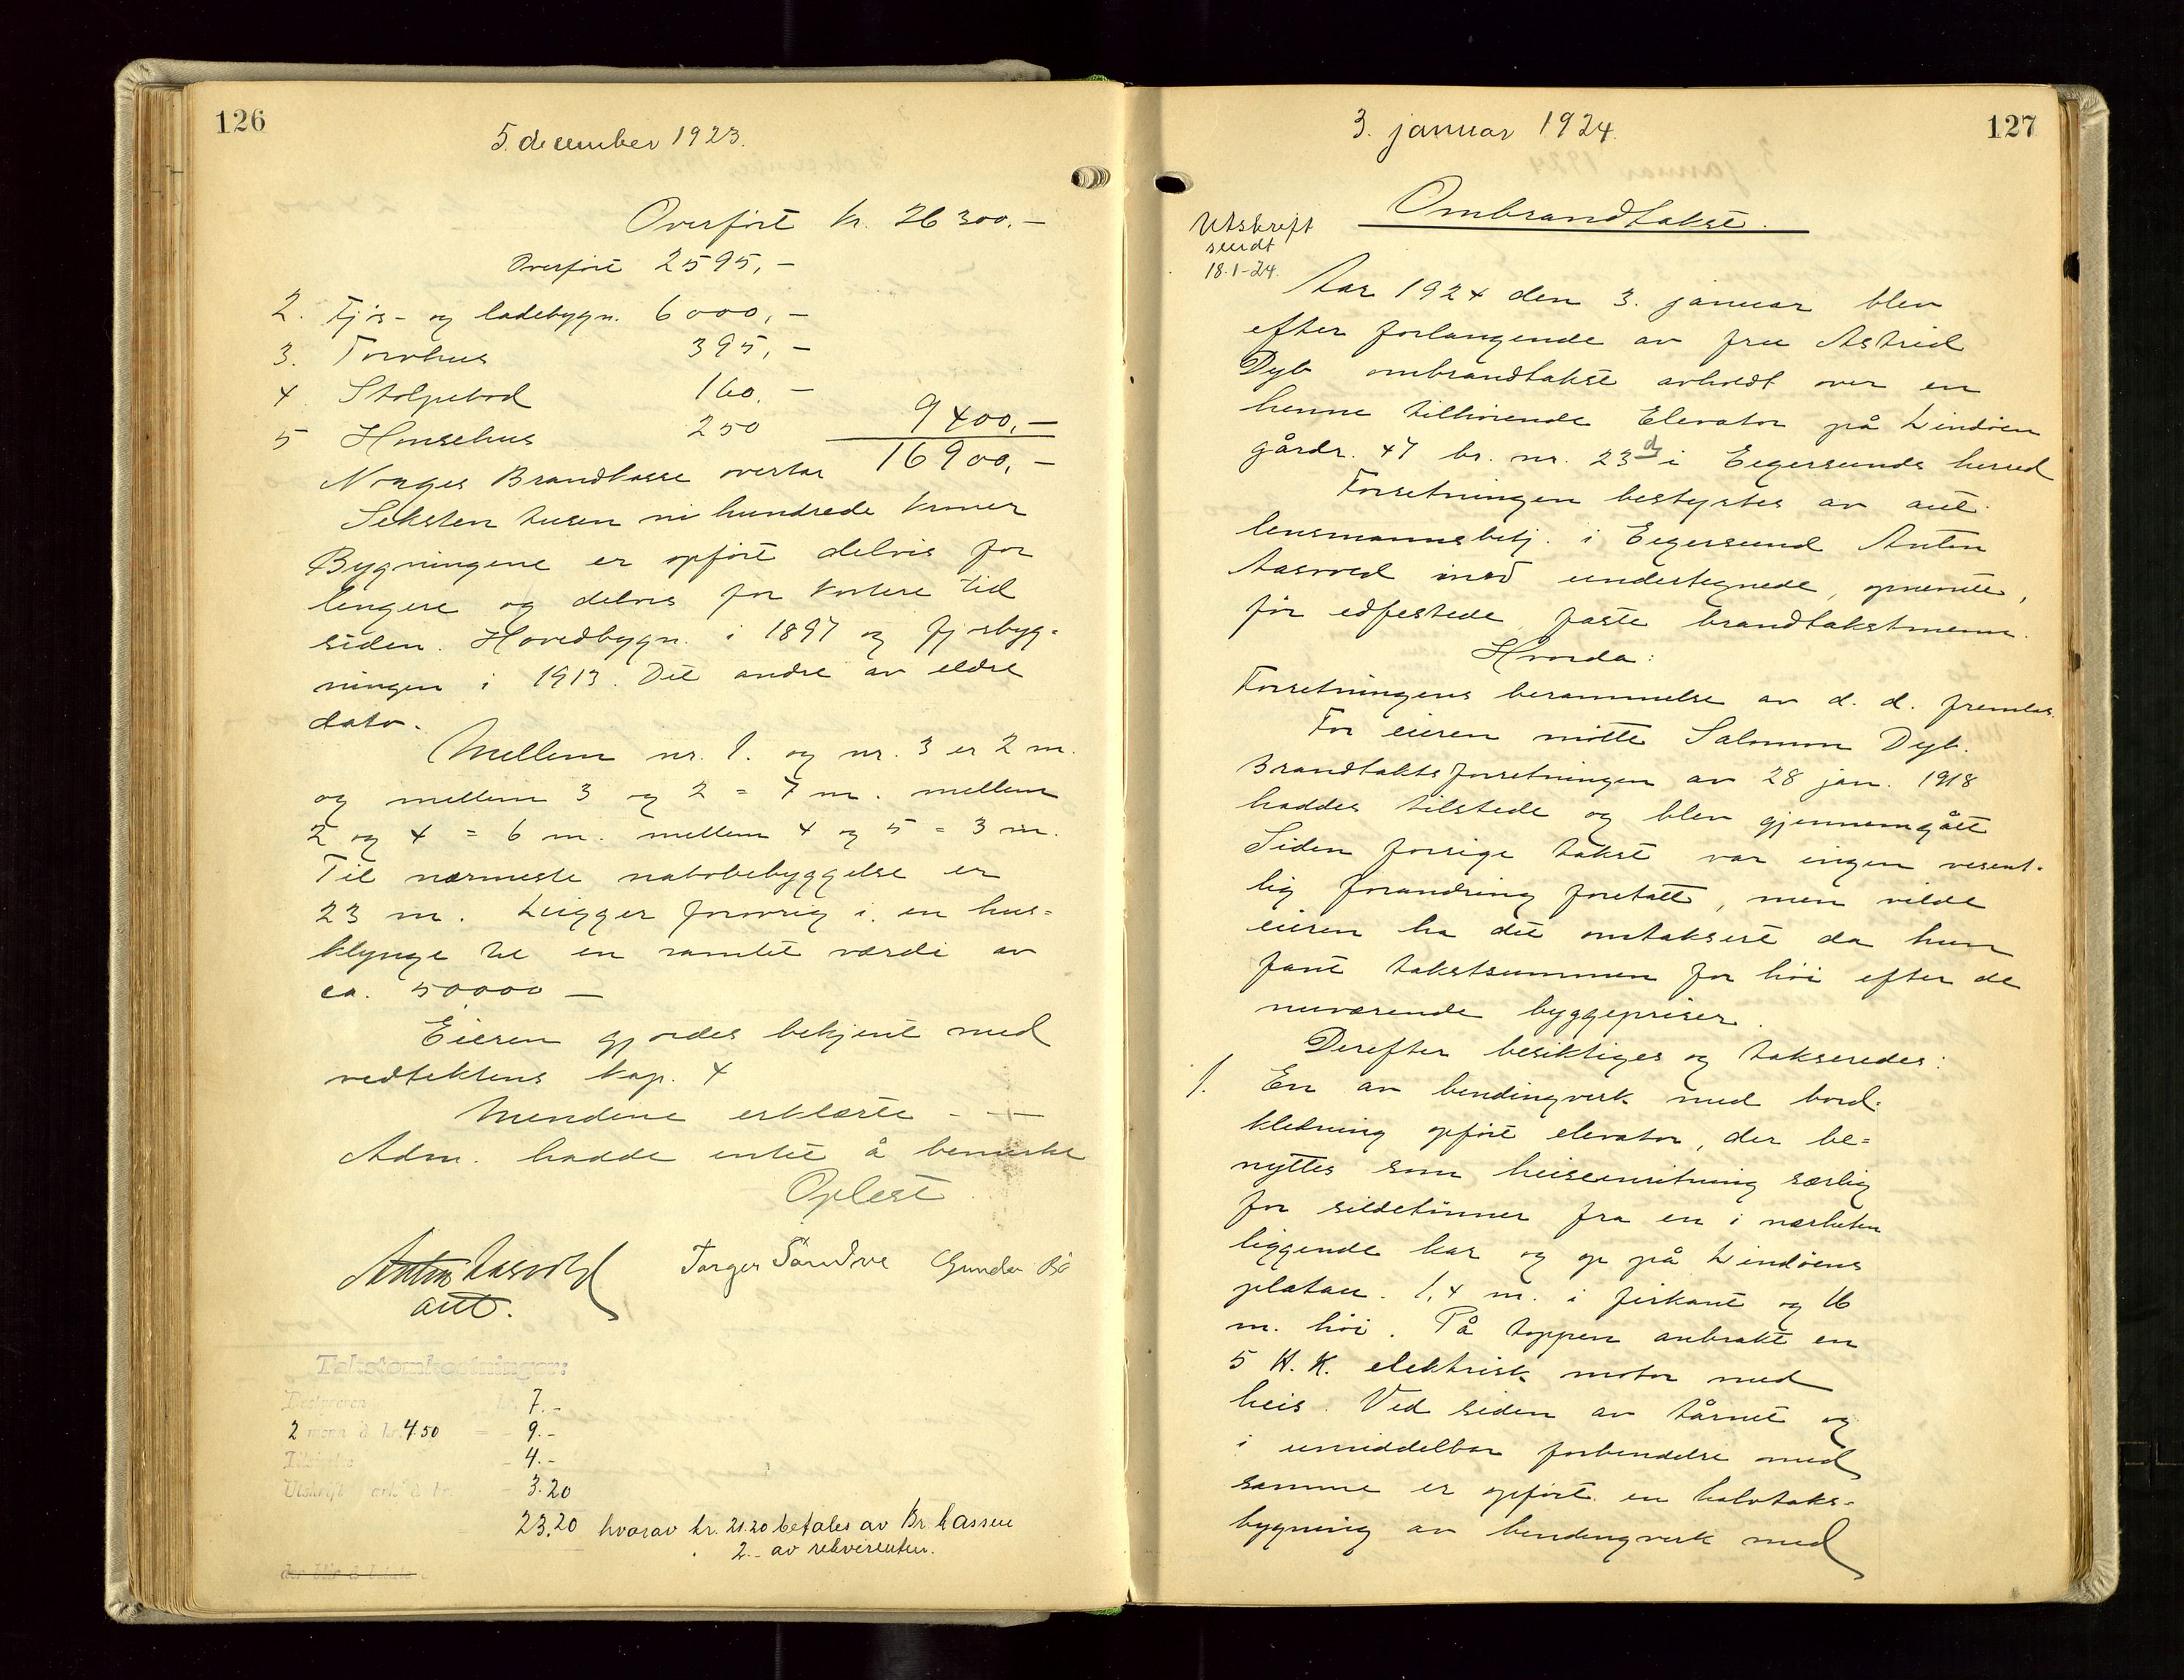 126
5. december 1923.
Overført kr. 26 300,-
Overført 2595,-
2. Fjøs- og ladebygn. 6000,-
3. Torvhus 395,-
4. Stolpebod 160.-
5 Hønsehus 250 9400,-
Norges Brandkasse overtar 16900,-
Seksten tusen ni hundrede kroner
Bygningene er opført delvis for
lengere og delvis for kortere tid
siden. Hovedbygn. i 1897 og fjøsbyg-
ningen i 1913. Det andre av eldre
dato.
Mellem nr. 1. og nr. 3 er 2 m.
og mellem 3 og 2 = 7 m. mellem
2 og 4 = 6 m. mellem 4 og 5 = 3 m.
Til nærmeste nabobebyggelse er
23 m. Ligger forøvrig i en hus=
klynge til en samlet værdi av
ca. 50000 -
Eieren gjordes bekjent med
vedtektens kap. 4
Mendene erklærte - -
Adm. hadde intet å bemerke
Oplest
Anton Aasved Torger Sandve Gunder Bø
aut.
Takstomkostninger:
Bestyreren kr. 7.-
2 menn à kr. 4.50 = - 9.-
- 4.-
Utskrift ark à kr. - 3.20
23.20 hvorav kr. 21.20 betales av Br. kassen
2.- av rekvirenten.
der blir å betale
3. januar 1924.
127
Utskrift
sendt
18.1-24.
Ombrandtakst.
Aar 1924 den 3. januar blev
efter forlangende av fru Astrid
Dyb ombrandtakst avholdt over en
henne tilhørende Elevator på Lindøen
gårdr. 47 br. nr. 23 d i Eegersunds herred
Forretningen bestyrtes av aut.
lensmannsbetj. i Eegersund Anton
Aasved med undertegnede, opnevnte,
før edfestede faste brandtakstmenn.
Hvorda:
Forretningens berammelse av d. d. fremlas.
For eieren møtte Salomon Dyb.
Brandtakstsforretningen av 28 jan. 1918
haddes tilstede og blev gjennemgått
Siden forrige takst var ingen vesent-
lig forandring foretatt, men vilde
eieren ha det omtaksert da hun
fant takstsummen for høi efter de
nuværende byggepriser.
Derefter besiktiges og takseredes:
1. En av bendingverk med bord-
kledning opført elevator, der be=
nyttes som heiseinnretning særlig
for sildetønner fra en i nærheten
liggende kai og op på Lindøens
platau. 1,4 m. i firkant og 16
m. høi. På toppen anbrakt en
5 H.K. elektrisk motor med
heis. Ved siden av tårnet og
i umiddelbar forbindelse med
samme er opført en halvtaks-
bygning av bendingverk med